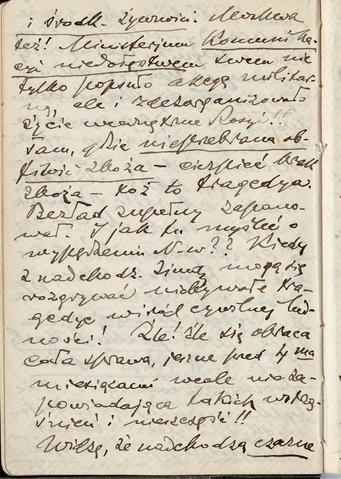 i środk. żywności. Moskwa
też! Ministerjum Komunika-
cyi niedołęstwem swem nie
tylko popsuło akcyę militar-
ną, ale i zdezorganizowało
życie wewnętrzne Rosyi!!
Tam, gdzie nieprzebrana ob-
fitość zboża – cierpieć brak
zboża – toż to tragedya.
Bezład zupełny zapano-
wał. I jak tu myśleć o
wypędzeniu N-w?? Kiedy
z nadchodz. zimą mogą się
rozgrywać niebywałe tra-
gedye wśród cywilnej lud-
ności! Źle! Źle się obraca
cała sprawa, jeszcze przed 4 ma
miesiącami wcale nie za-
powiadająca takich
i nieszczęść!!
Widzę, że nadchodzą czarne